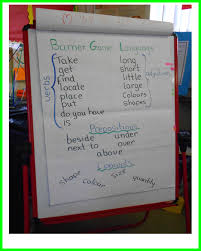 Barrier Game Language
Take long
get short
find little
locate large
place colours
put shapes
do you have
is
verbs
adjectives
Prepositions
beside under
next to over
above
Concepts
shape colour size quantity